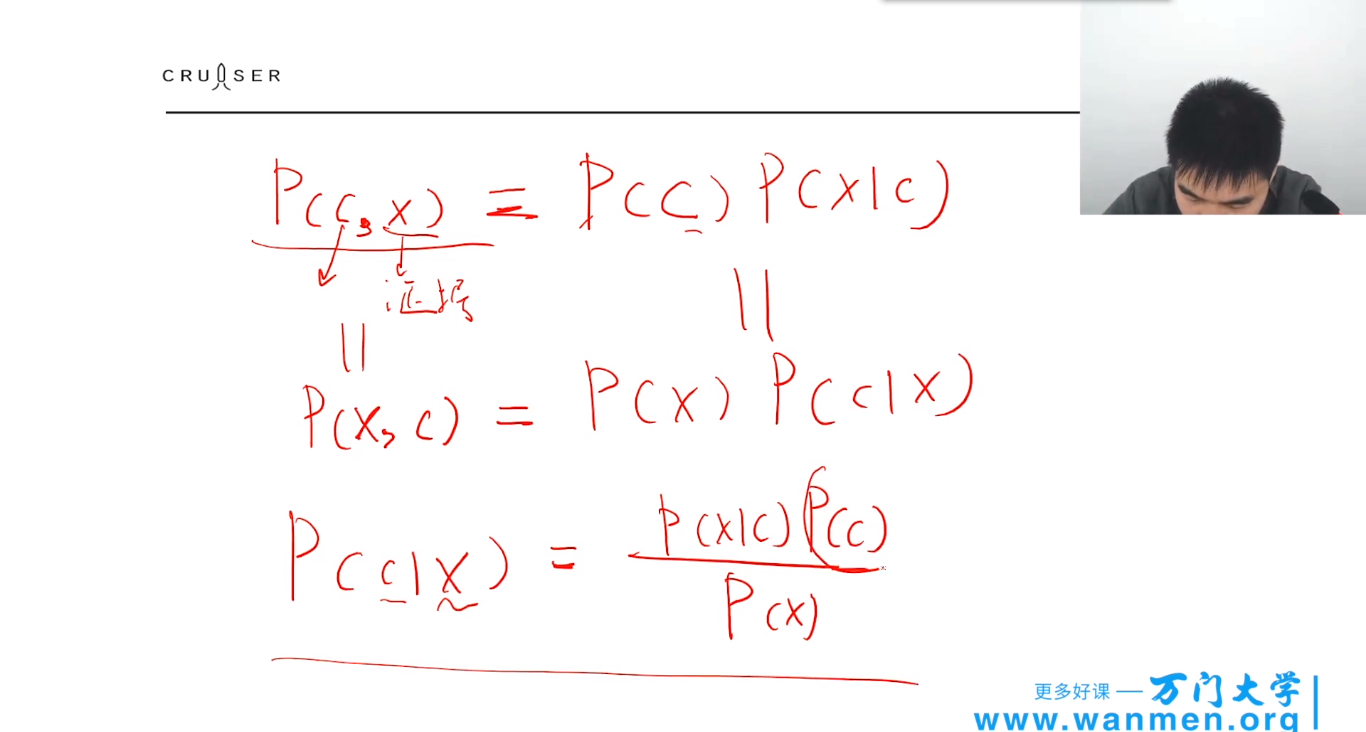 CRUISER
P(C, X) = P(C) P(X|C)
证据
||
||
P(X, C) = P(X) P(C|X)
P(C|X) = P(X|C) P(C)
P(X)
更多好课 — 万门大学
www.wanmen.org